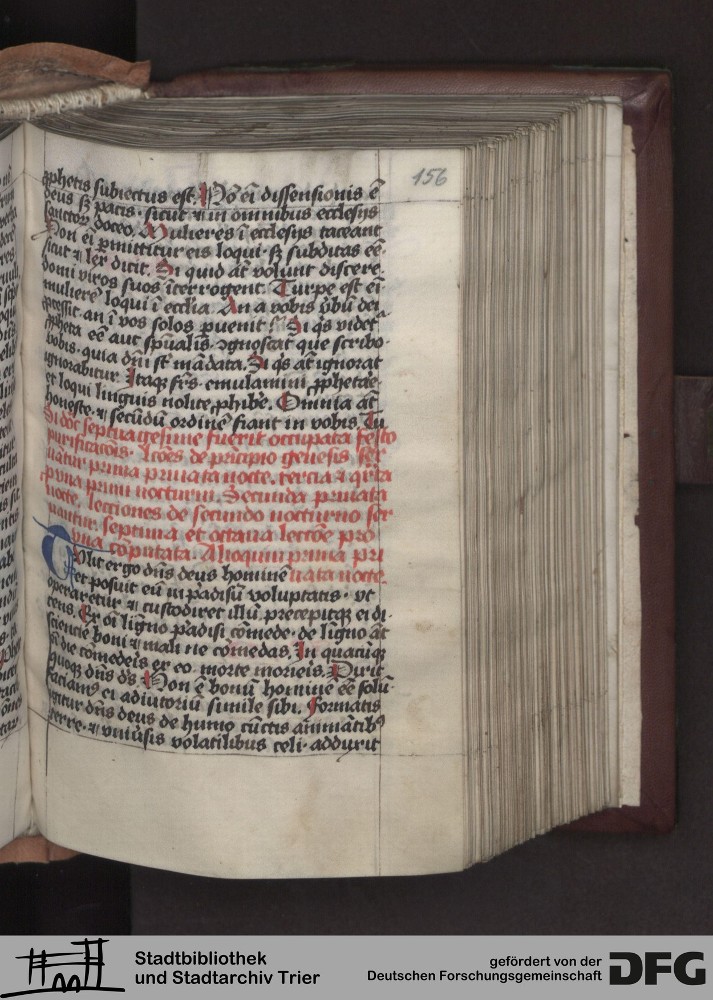 156
ꝓphetis subiectus est. Nō eī dissensionis ē
deus sꝫ pacis. sicut ⁊ in omnibus ecclesijs
sanctoꝝ doceo. Mulieres ī ecclesijs taceant
Non eī ꝑmittitur eis loqui. sꝫ subditas eē.
sicut ⁊ lex dicit. Si quid āt volunt discere.
domi viros suos īterrogent. Turpe est eī
mulierē loqui ī ecclīa. An a vobis v̄bū dei
ꝓcessit. an ī vos solos ꝑuenit. Si qͥs videt᷑
ꝓpheta eē aut sp̄ualis. ꝯgnoscat que scribo
vobis. quia dn̄i st̄ mādata. Si qͥs āt ignorat
ignorabitur. Itaqꝫ fr̄s. emulamini ꝓphetare.
et loqui linguis nolite ꝓhibe. Omnia āt
honeste. ⁊ secūdū ordinē fiant in vobis. Tu
Si dōc septuagesime fuerit occupata festo
purificacōis. lcōes de pͥncipio genesis ser
uātur prima priuata nocte. tercia ⁊ qͥrta
nocturni. Secunda priuata
nocte. lecciones de secundo nocturno ser
uantur. septima et octaua lectōe pro
vna cōputata. Alioquin prima pri
Tulit ergo dn̄s deus hominē uata nocte.
et posuit eū in padisū voluptatis. vt
operaretur ⁊ custodiret illū. precepitqꝫ ei di
cens. Ex oī ligno padisi cōmede. de ligno āt
sciencie boni ⁊ mali ne cōmedas. In quacūqꝫ
n̄ die comederis ex eo morte morieris. Dixit
quoqꝫ dn̄s ds̄. Non ē bonū hominē eē solū
faciamꝰ ei adiutoriū simile sibi. Formatis
igitur dn̄s deus de humo cūctis animātibꝰ
terre. ⁊ vniūsis volatilibus celi. adduxit
Stadtbibliothek
und Stadtarchiv Trier
gefördert von der
Deutschen Forschungsgemeinschaft
DFG